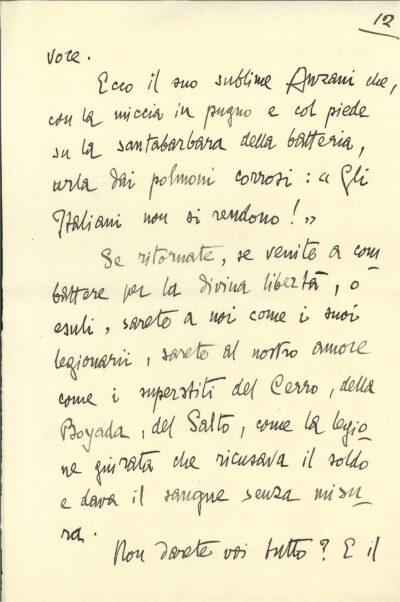 12
voce.
Ecco il suo sublime Anzani che,
con la miccia in pugno e col piede
su la santabarbara della batteria,
urla dai polmoni corrosi: "Gli
Italiani non si rendono!"
Se ritornate, se venite a com
battere per la divina libertà, o
esuli, sarete a noi come i suoi
legionarii, sarete al nostro amore
come i superstiti del Cerro, della
Boyada, del Salto, come la legio-
ne giurata che ricusava il soldo
e dava il sangue senza misu-
ra.
Non darete voi tutto? E il